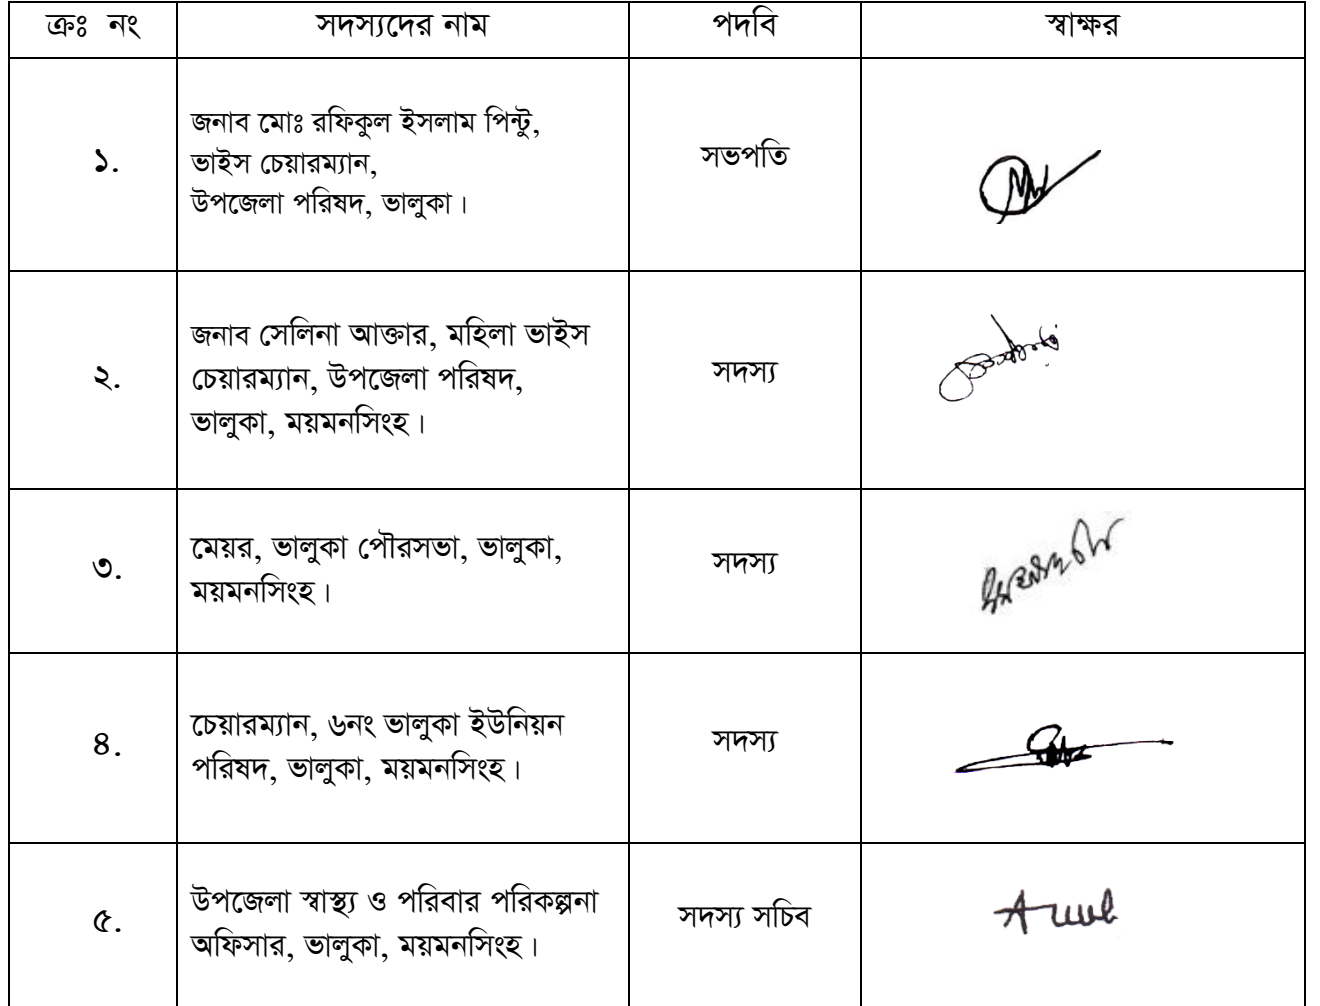 ক্রঃ নং সদস্যদের নাম পদবি স্বাক্ষর
১.
জনাব মোঃ রফিকুল ইসলাম পিন্টু,
ভাইস চেয়ারম্যান,
উপজেলা পরিষদ, ভালুকা।
সভপতি
২.
জনাব সেলিনা আক্তার, মহিলা ভাইস
চেয়ারম্যান, উপজেলা পরিষদ,
ভালুকা, ময়মনসিংহ।
সদস্য
৩.
মেয়র, ভালুকা পৌরসভা, ভালুকা,
ময়মনসিংহ।
সদস্য
৪.
চেয়ারম্যান, ৬নং ভালুকা ইউনিয়ন
পরিষদ, ভালুকা, ময়মনসিংহ।
সদস্য
৫.
উপজেলা স্বাস্থ্য ও পরিবার পরিকল্পনা
অফিসার, ভালুকা, ময়মনসিংহ।
সদস্য সচিব